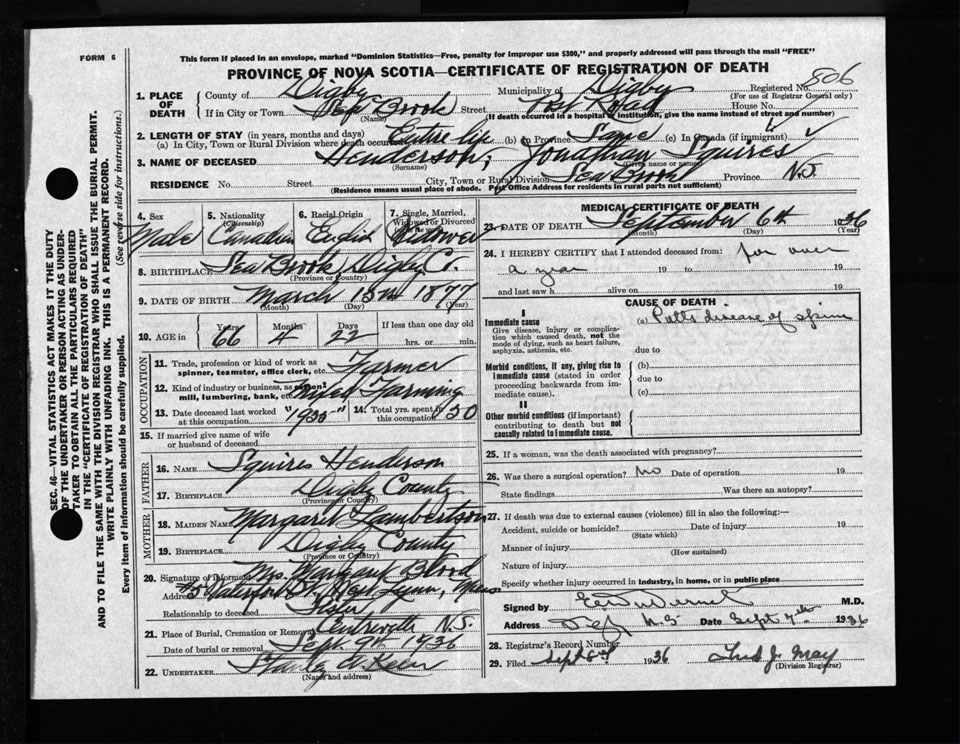 FORM 6
This form if placed in an envelope, marked "Dominion Statistics—Free, penalty for improper use $300," and properly addressed will pass through the mail "FREE"
PROVINCE OF NOVA SCOTIA—CERTIFICATE OF REGISTRATION OF DEATH
806
1. PLACE OF DEATH
County of Digby Municipality of Digby Registered No.
(For use of Registrar General only)
If in City or Town Sea Brook Street Post Road House No.
(Name) (If death occurred in a hospital or institution, give the name instead of street and number)
2. LENGTH OF STAY (in years, months and days)
(a) In City, Town or Rural Division where death occurred Entire life (b) In Province Same (c) In Canada (if immigrant)
3. NAME OF DECEASED Henderson, Jonathan Squires
(Surname) (Given name or names)
RESIDENCE No. Street City, Town or Rural Division Sea Brook Province N.S.
(Residence means usual place of abode. Post Office Address for residents in rural parts not sufficient)
4. Sex Male
5. Nationality (Citizenship) Canadian
6. Racial Origin English
7. Single, Married, Widowed or Divorced Widower
8. BIRTHPLACE Sea Brook, Digby Co.
(Province or Country)
9. DATE OF BIRTH March 15th 1877
(Month) (Day) (Year)
10. AGE in Years 66 Months 4 Days 22 If less than one day old hrs. or min.
OCCUPATION
11. Trade, profession or kind of work as spinner, teamster, office clerk, etc. Farmer
12. Kind of industry or business, as cotton mill, lumbering, bank, etc. Mixed Farming
13. Date deceased last worked at this occupation "1935"
14. Total yrs. spent in this occupation 50
15. If married give name of wife or husband of deceased
FATHER
16. NAME Squires Henderson
17. BIRTHPLACE Digby County
(Province or Country)
MOTHER
18. MAIDEN NAME Margaret Lambertson
19. BIRTHPLACE Digby County
(Province or Country)
20. Signature of Informant Mrs. Margaret Blood
Address 75 Waterford St, West Lynn, Mass
Relationship to deceased Sister
21. Place of Burial, Cremation or Removal Centreville N.S.
Date of burial or removal Sept. 9th 1936
22. UNDERTAKER Stanley
(Name and address)
MEDICAL CERTIFICATE OF DEATH
23. DATE OF DEATH September 6th 1936
(Month) (Day) (Year)
24. I HEREBY CERTIFY that I attended deceased from: for over
a year 19 to 19
and last saw h alive on 19
CAUSE OF DEATH
I
Immediate cause
Give disease, injury or complication which caused death, not the mode of dying, such as heart failure, asphyxia, asthenia, etc.
(a) Potts disease of spine
due to
Morbid conditions, if any, giving rise to immediate cause (stated in order proceeding backwards from immediate cause).
(b)
due to
(c)
II
Other morbid conditions (if important) contributing to death but not causally related to immediate cause.
25. If a woman, was the death associated with pregnancy?
26. Was there a surgical operation? No Date of operation 19
State findings Was there an autopsy?
27. If death was due to external causes (violence) fill in also the following:—
Accident, suicide or homicide? Date of injury 19
(State which)
Manner of injury
(How sustained)
Nature of injury
Specify whether injury occurred in industry, in home, or in public place
Signed by M.D.
Address Digby N.S Date Sept 7th 1936
28. Registrar's Record Number
29. Filed Sept 8th 1936 J. May
(Division Registrar)
SEC. 46—VITAL STATISTICS ACT MAKES IT THE DUTY
OF THE UNDERTAKER OR PERSON ACTING AS UNDER-
TAKER TO OBTAIN ALL THE PARTICULARS REQUIRED
IN THE "CERTIFICATE OF REGISTRATION OF DEATH"
AND TO FILE THE SAME WITH THE DIVISION REGISTRAR WHO SHALL ISSUE THE BURIAL PERMIT.
WRITE PLAINLY WITH UNFADING INK. THIS IS A PERMANENT RECORD.
Every item of information should be carefully supplied. (See reverse side for instructions.)